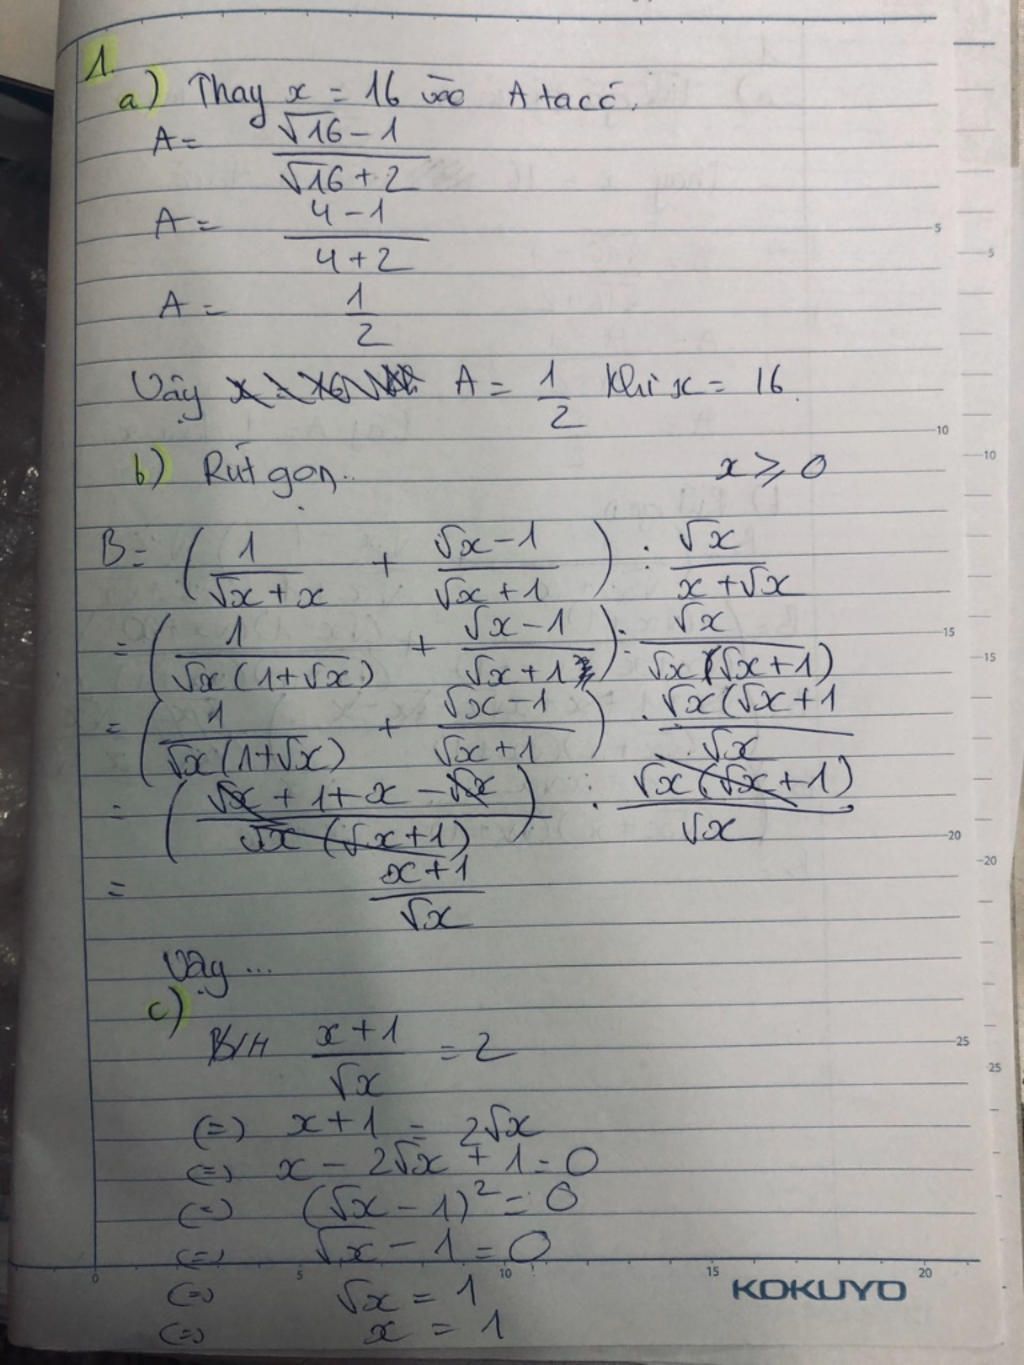 1.
a) Thay x = 16 vào A ta có.
A = (√16 - 1)/(√16 + 2)
A = (4 - 1)/(4 + 2)
A = 1/2
Vậy A = 1/2 khi x = 16.
b) Rút gọn.. x ≥ 0
B = (1/(√x + x) + (√x - 1)/(√x + 1)) : √x/(x + √x)
= (1/(√x(1 + √x)) + (√x - 1)/(√x + 1)) : √x/(√x(√x + 1))
= (1/(√x(1 + √x)) + (√x - 1)/(√x + 1)) . (√x(√x + 1)/√x
= ((√x + 1 + x - √x)/(√x(√x + 1))) : (√x(√x + 1))/√x
= (x + 1)/√x
Vậy ...
c)
(x + 1)/√x = 2
(=) x + 1 = 2√x
(=) x - 2√x + 1 = 0
(=) (√x - 1)² = 0
(=) √x - 1 = 0
(=) √x = 1
(=) x = 1
5
5
10
10
15
15
20
20
25
25
0 5 10 15 20
KOKUYO